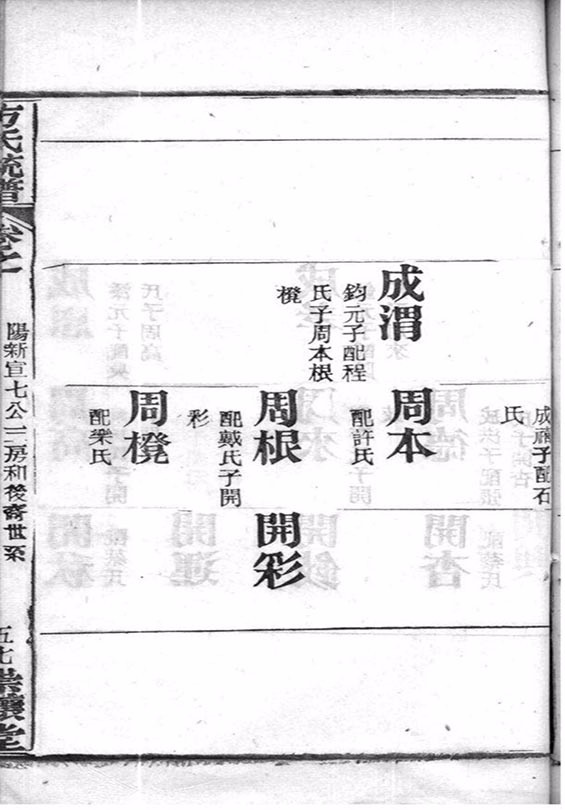 成禰子配石
氏
成渭
鈞元子配程
氏子周本根
櫈
周本
配許氏
周根
配戴氏子開
彩
開彩
周櫈
配樂氏
方氏統譜
卷七
陽新宣七公三房和後裔世系
五七
堂